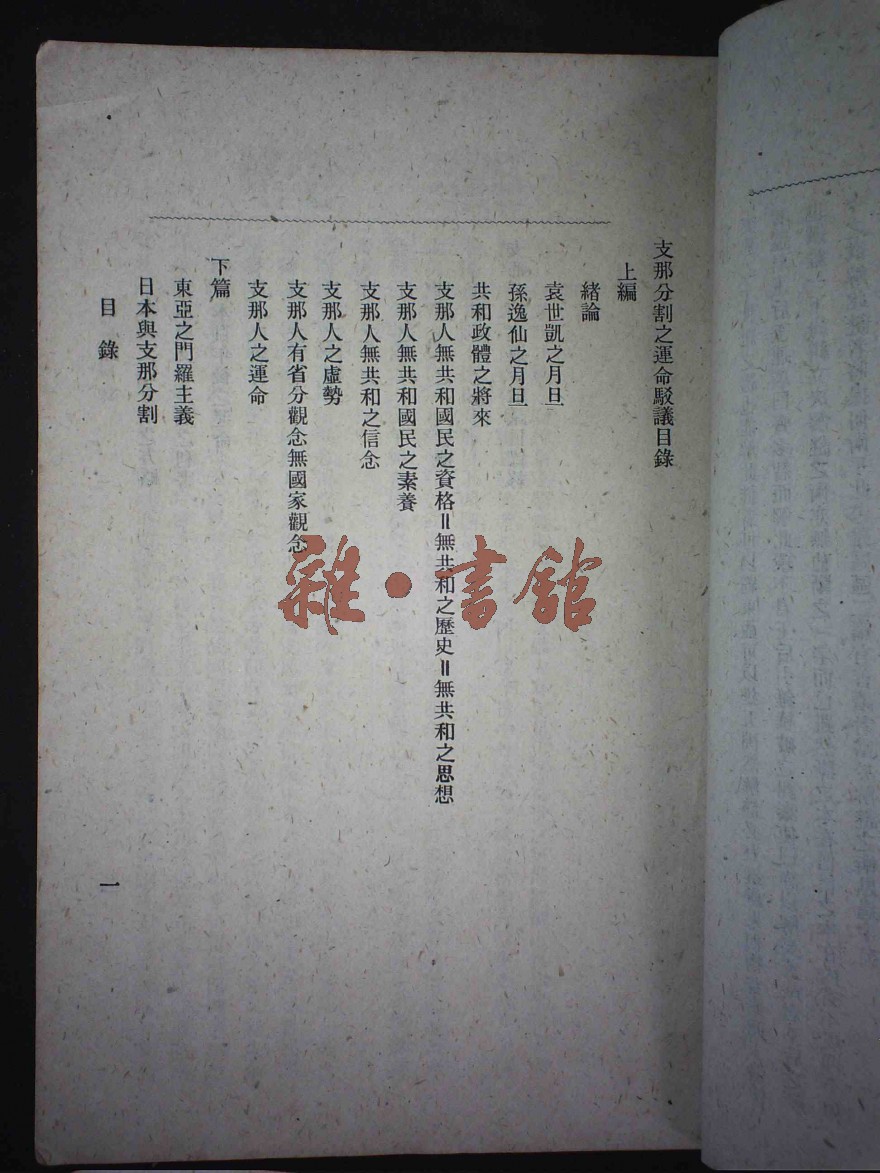 支那分割之運命駁議目錄
上編
緒論
袁世凱之月旦
孫逸仙之月旦
共和政體之將來
支那人無共和國民之資格＝無共和之歷史＝無共和之思想
支那人無共和國民之素養
支那人無共和之信念
支那人之虛勢
支那人有省分觀念無國家觀念
支那人之運命
下篇
東亞之門羅主義
日本與支那分割
目錄
一
雜·書館